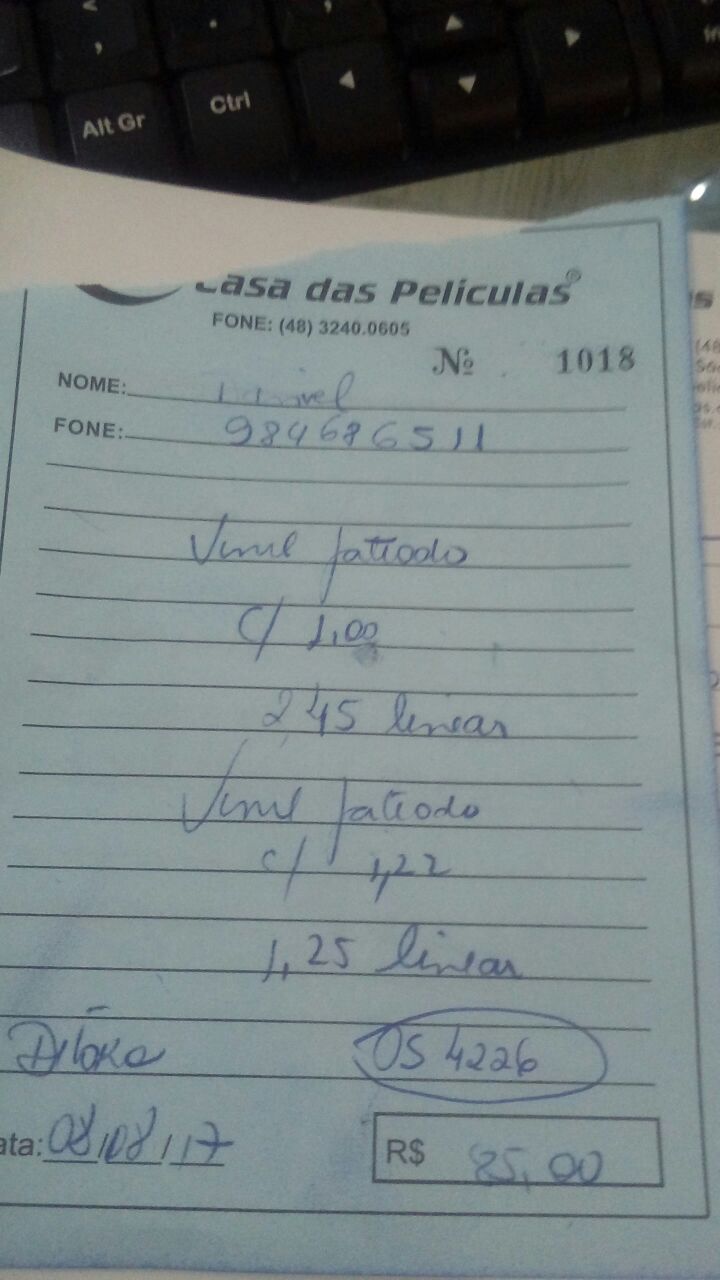 Alt Gr
Ctrl
Casa das Películas®
FONE: (48) 3240.0605
Nº 1018
NOME:
FONE: 984686511
Vinil jateado
C/ 1,00
2,45 linear
Vinil jateado
c/ 1,22
1,25 linear
OS 4226
ata: 08/08/17
R$ 85,00